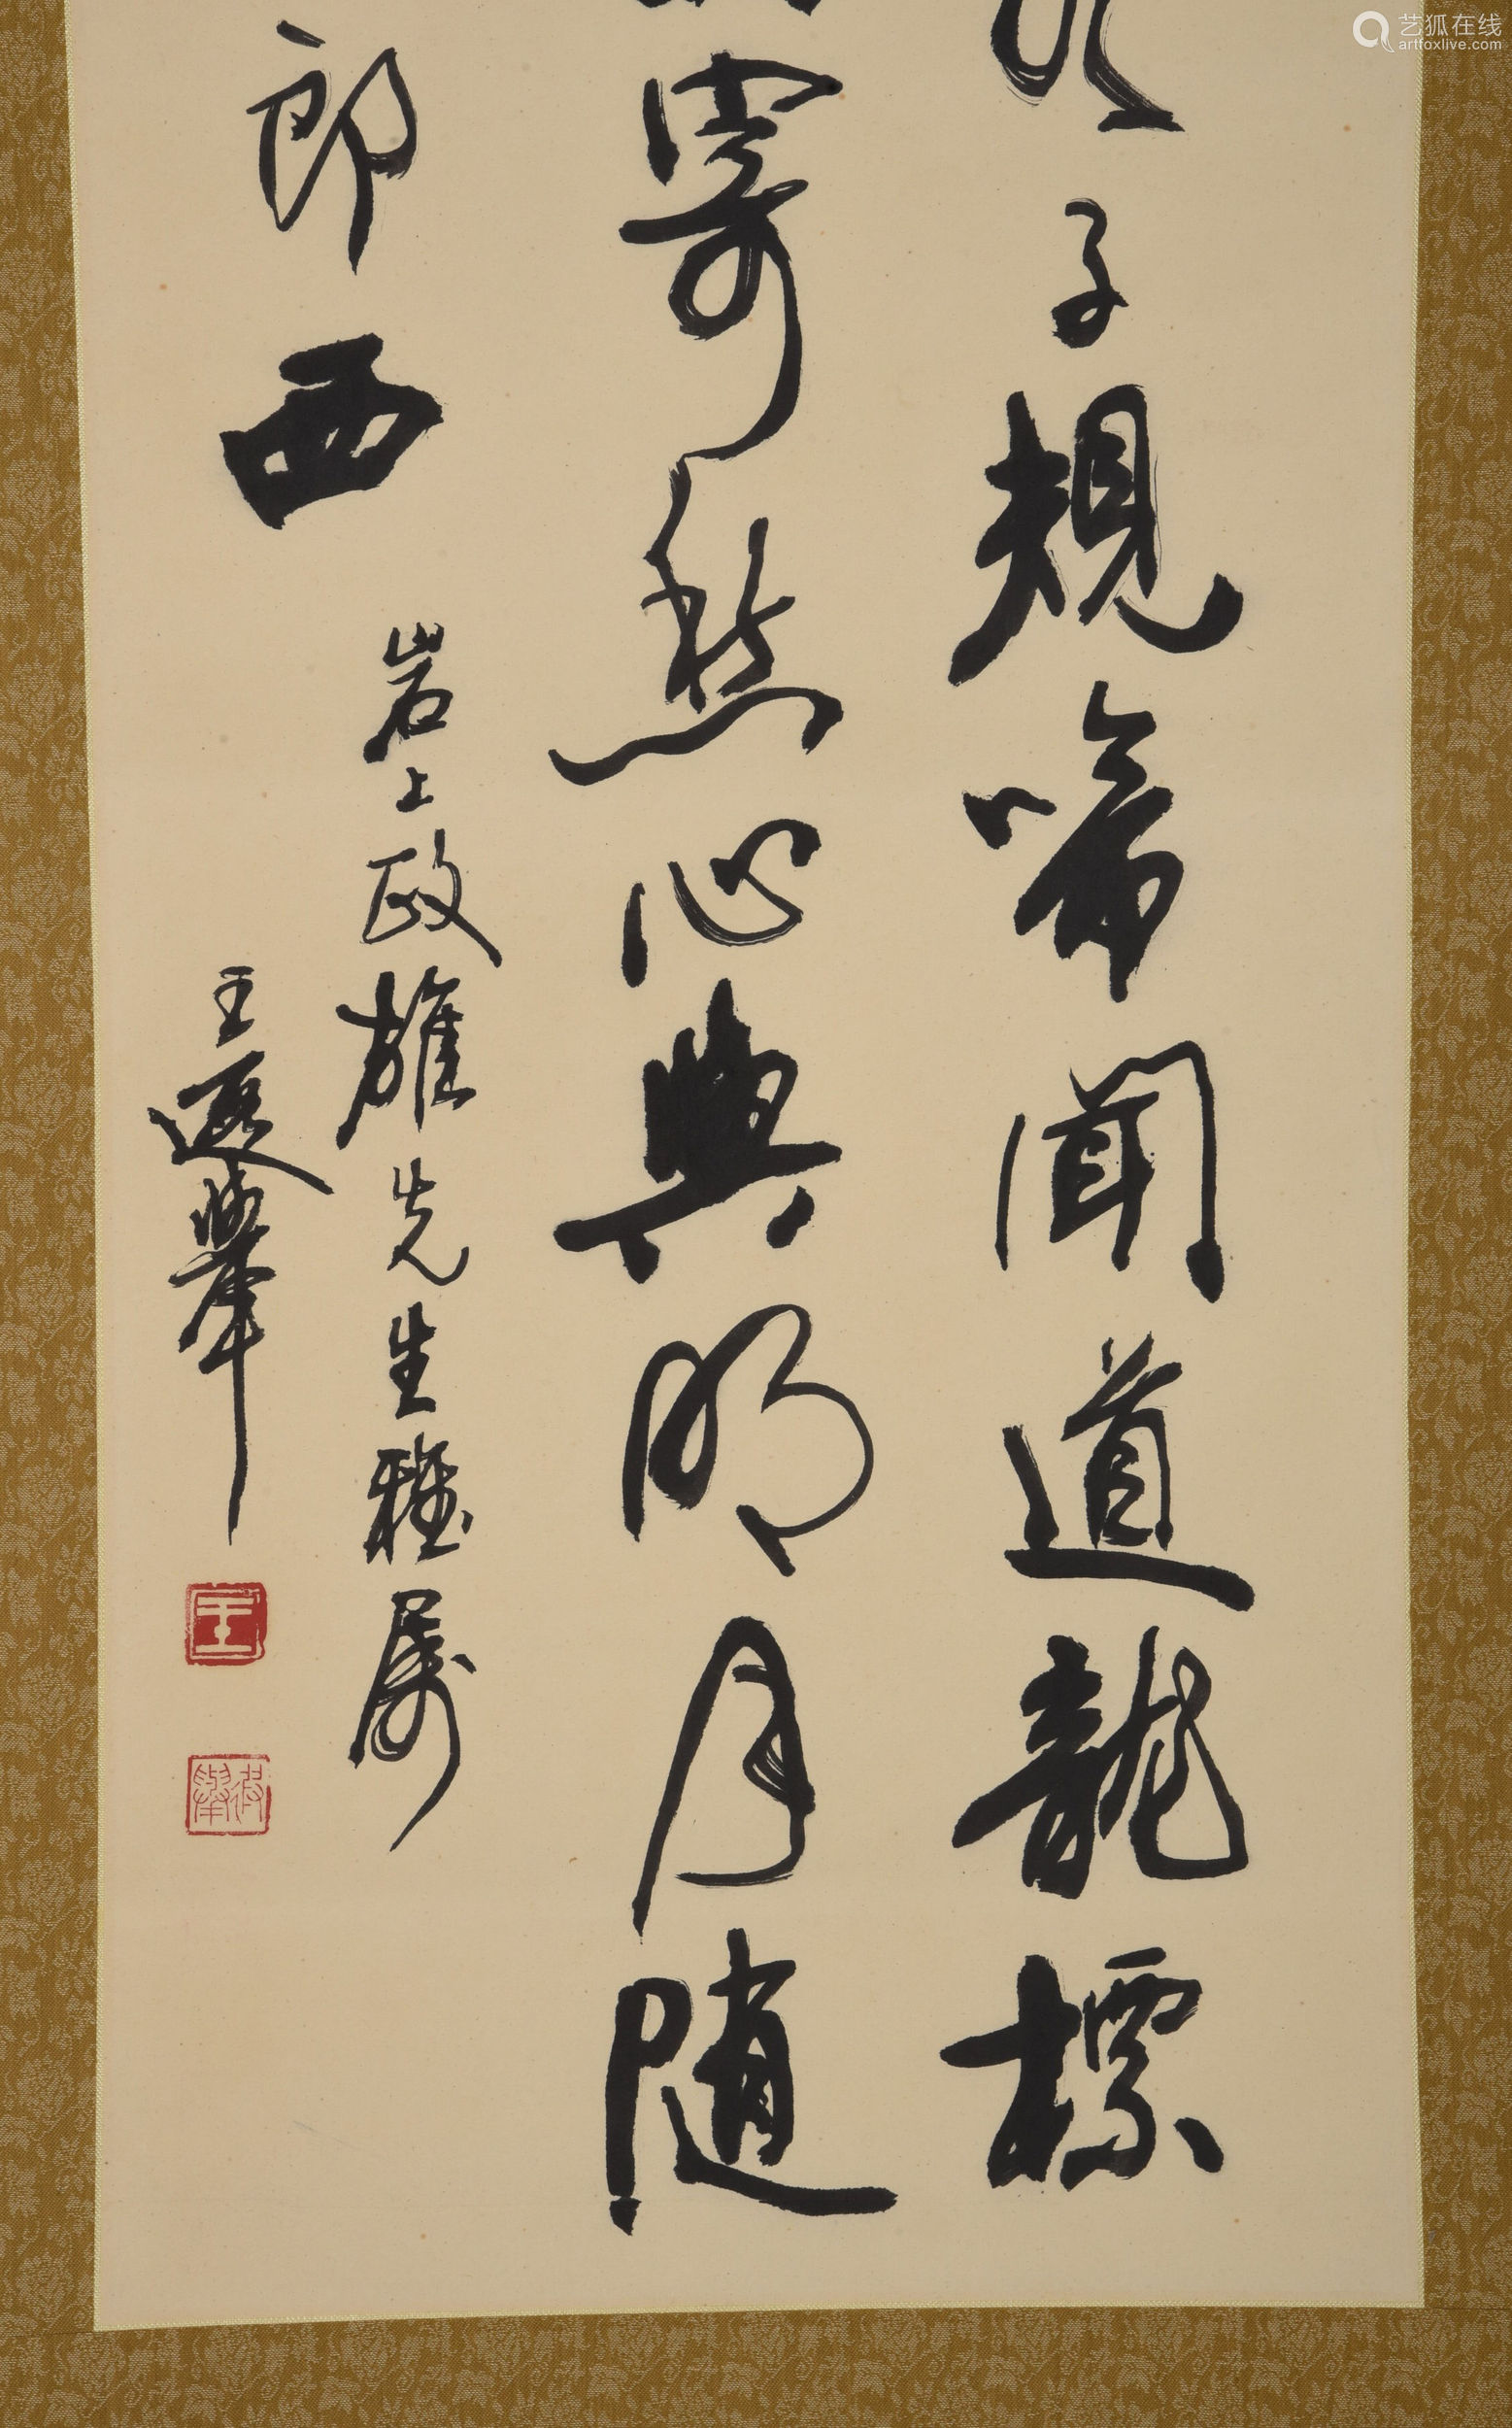 子規啼聞道龍標
寄愁心與明月隨
郎西
岩上政雄先生雅属
王遐舉
王
遐舉
艺狐在线
artfoxlive.com